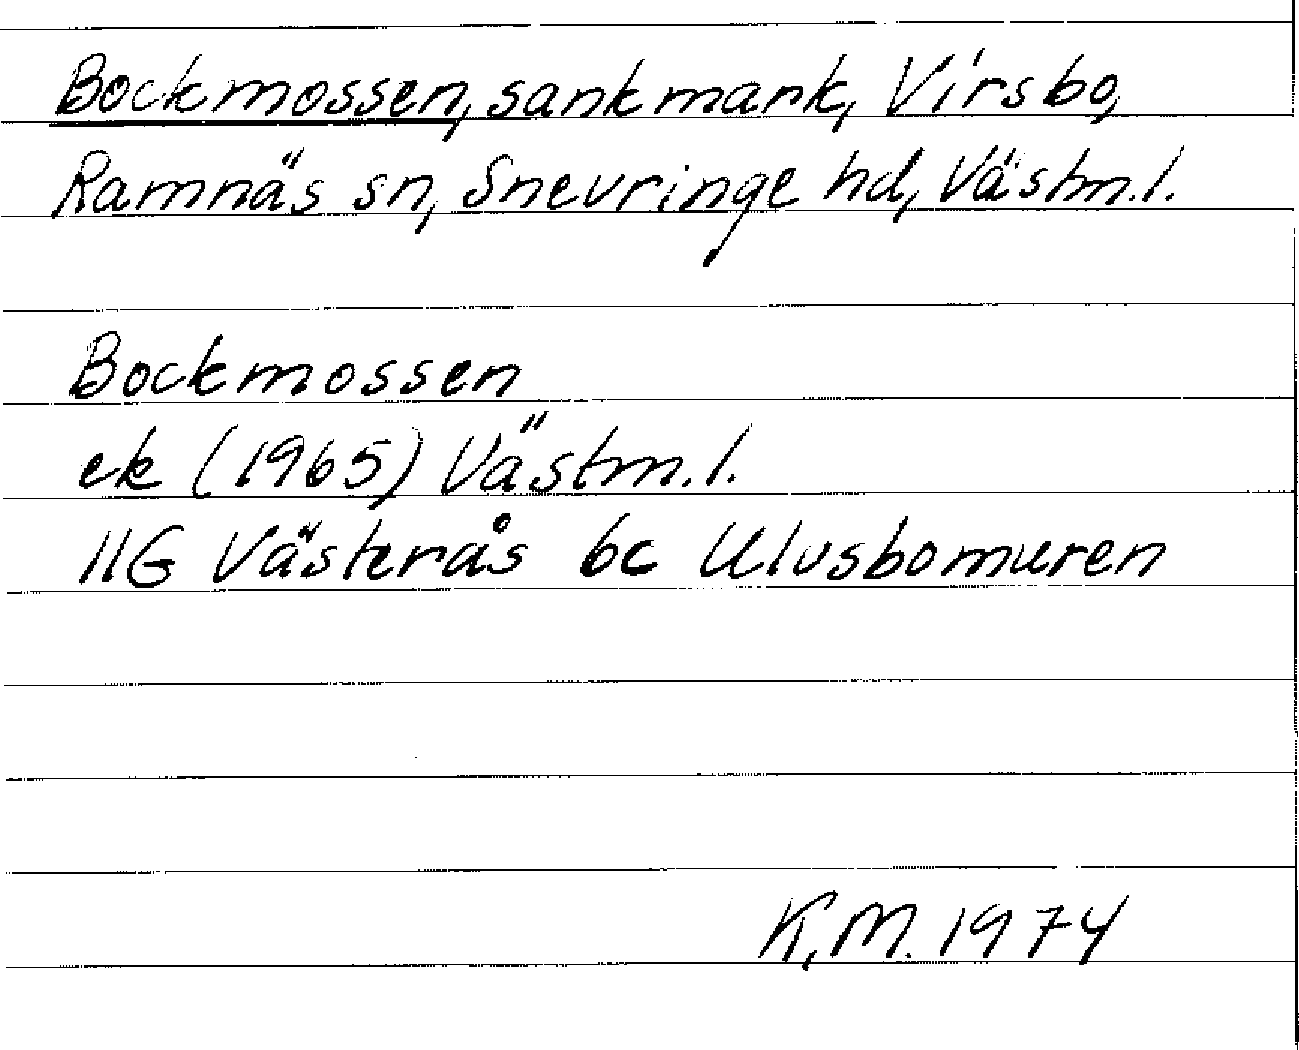 Bockmossen, sankmark, Virsbo,
Ramnäs sn, Snevringe hd, Västm.l.
Bockmossen
ek (1965) Västm.l.
11G Västerås 6c Ulvsbomuren
K.M. 1974